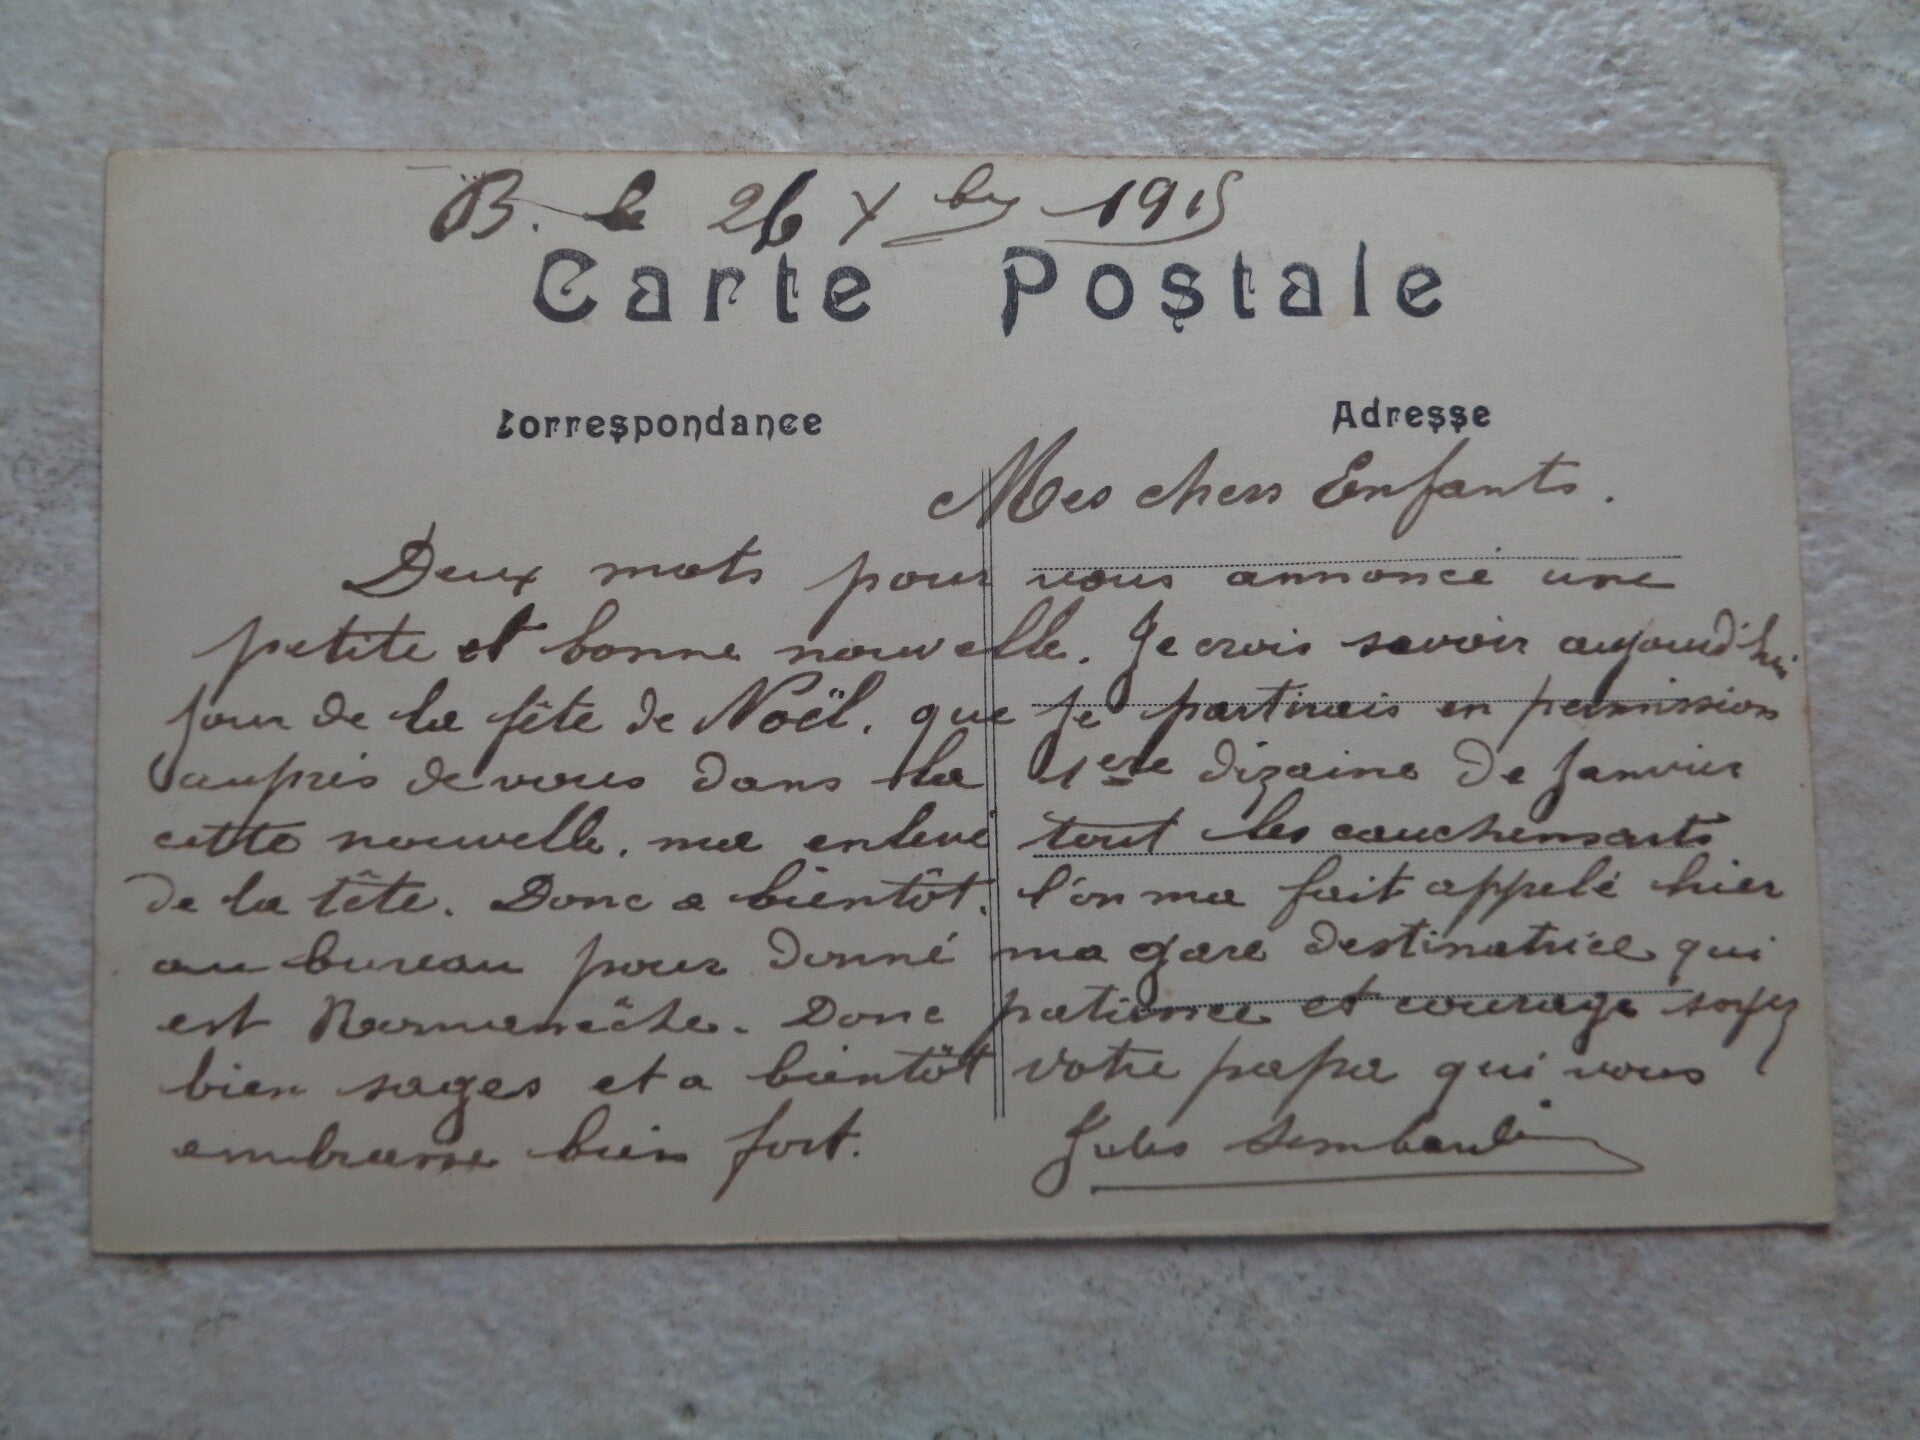 B. le 26 Xbre 1915
Carte Postale
Correspondance
Adresse
Mes chers Enfants.
Deux mots pour vous annoncé une
petite et bonne nouvelle. Je crois savoir aujourd'hui
jour de la fête de Noël. que je partirais en permission
auprès de vous dans la 1ere dizaine de Janvier
cette nouvelle. ma enlevé tout les cauchemarts
de la tête. Donc a bientôt. l'on ma fait appelé hier
au bureau pour donné ma gare destinatrice qui
est Romanêche. Donc patience et courage soyez
bien sages et a bientôt votre papa qui vous
embrasse bien fort. Jules